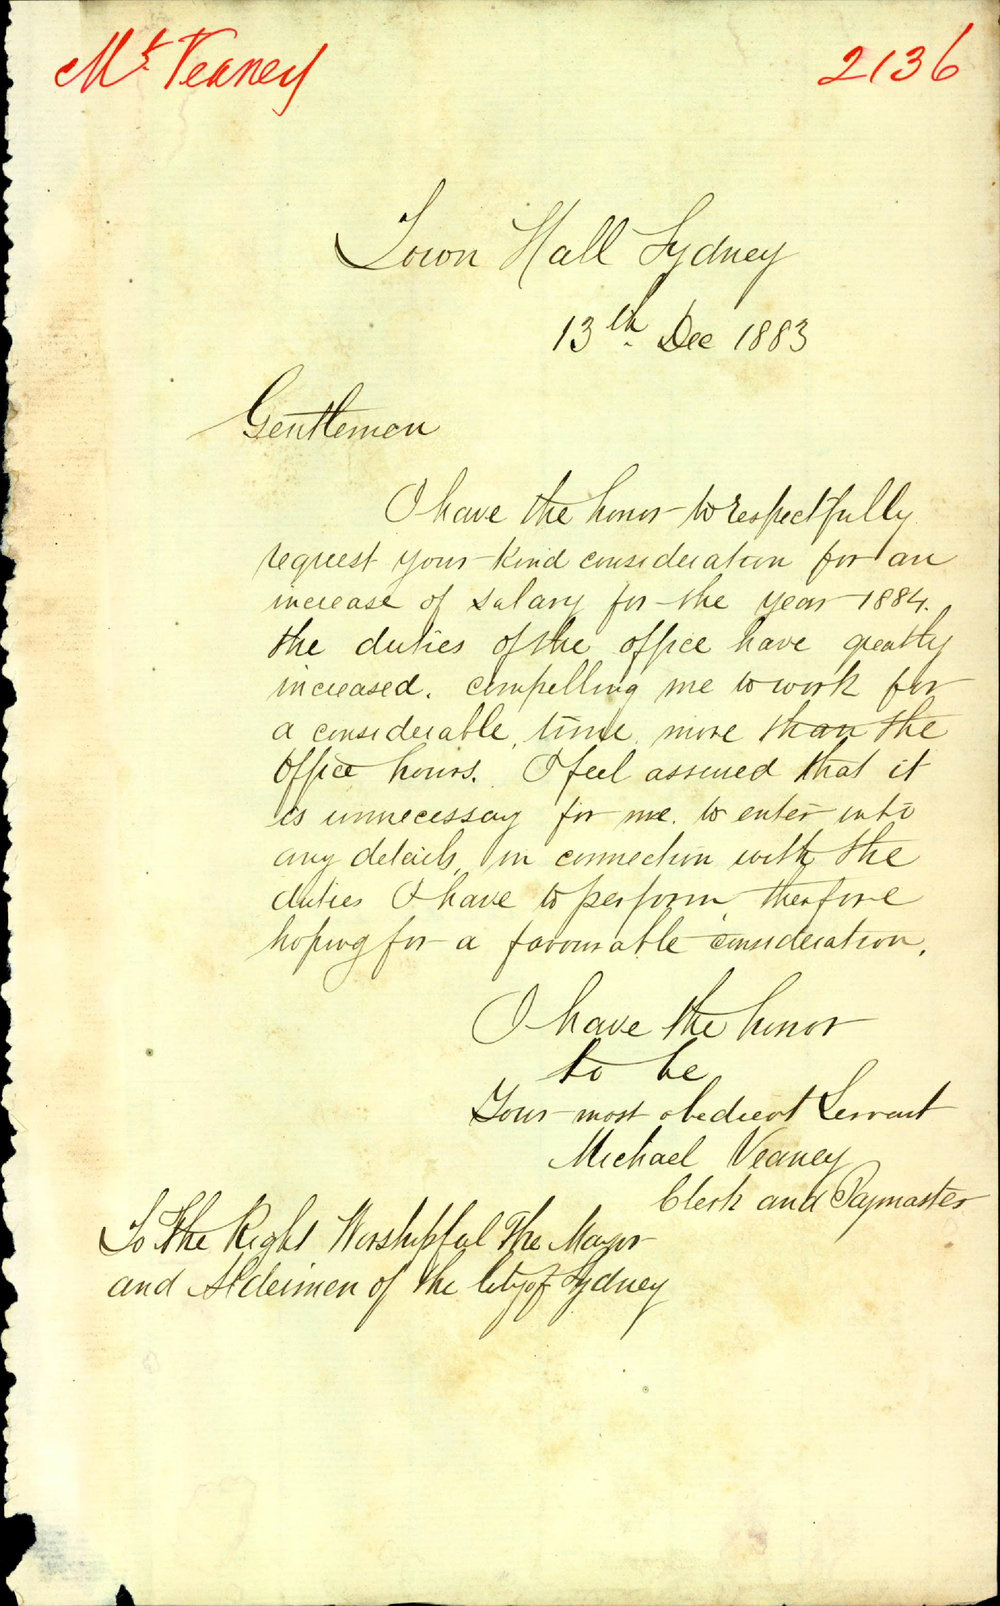 Mr. Veaney
2136
Town Hall Sydney
13th. Dec 1883
Gentlemen
I have the honor to respectfully
request your kind consideration for an
increase of salary for the year 1884.
the duties of the office have greatly
increased. compelling me to work for
a considerable, time, more than the
Office hours. I feel assured that it
is unnecessay for me. to enter into
any details, in connection with the
duties I have to perform, therfore
hoping for a favourable consideration.
I have the honor
to be
Your most obedient Servant
Michael Veaney
Clerk and Paymaster
To The Right Worshipful The Mayor
and Aldermen of the City of Sydney